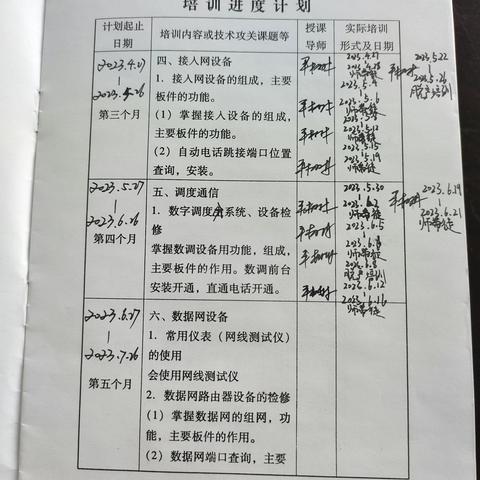 培训进度计划
计划起止
日期
培训内容或技术攻关课题等
授课
导师
实际培训
形式及日期
2023.4.27
2023.5.26
第三个月
四、接入网设备
1．接入网设备的组成，主要
板件的功能。
(1) 掌握接入设备的组成，
主要板件的功能。
(2) 自动电话跳接端口位置
查询，安装。
2023.4.27
2023.4.28
师带徒
2023.5.4
2023.5.12
师带徒
2023.5.15
2023.5.19
师带徒
2023.5.22
2023.5.26
脱产培训
2023.5.27
2023.6.26
第四个月
五、调度通信
1．数字调度系统、设备检
修
掌握数调设备用功能，组成，
主要板件的作用。数调前台
安装开通，直通电话开通。
2023.5.30
2023.6.2
师带徒
2023.6.5
师带徒
脱产培训
2023.6.12
2023.6.16
师带徒
2023.6.19
2023.6.21
师带徒
2023.6.27
2023.7.26
第五个月
六、数据网设备
1．常用仪表（网线测试仪）
的使用
会使用网线测试仪
2．数据网路由器设备的检修
(1) 掌握数据网的组网，功
能，主要板件的作用。
(2) 数据网端口查询，主要